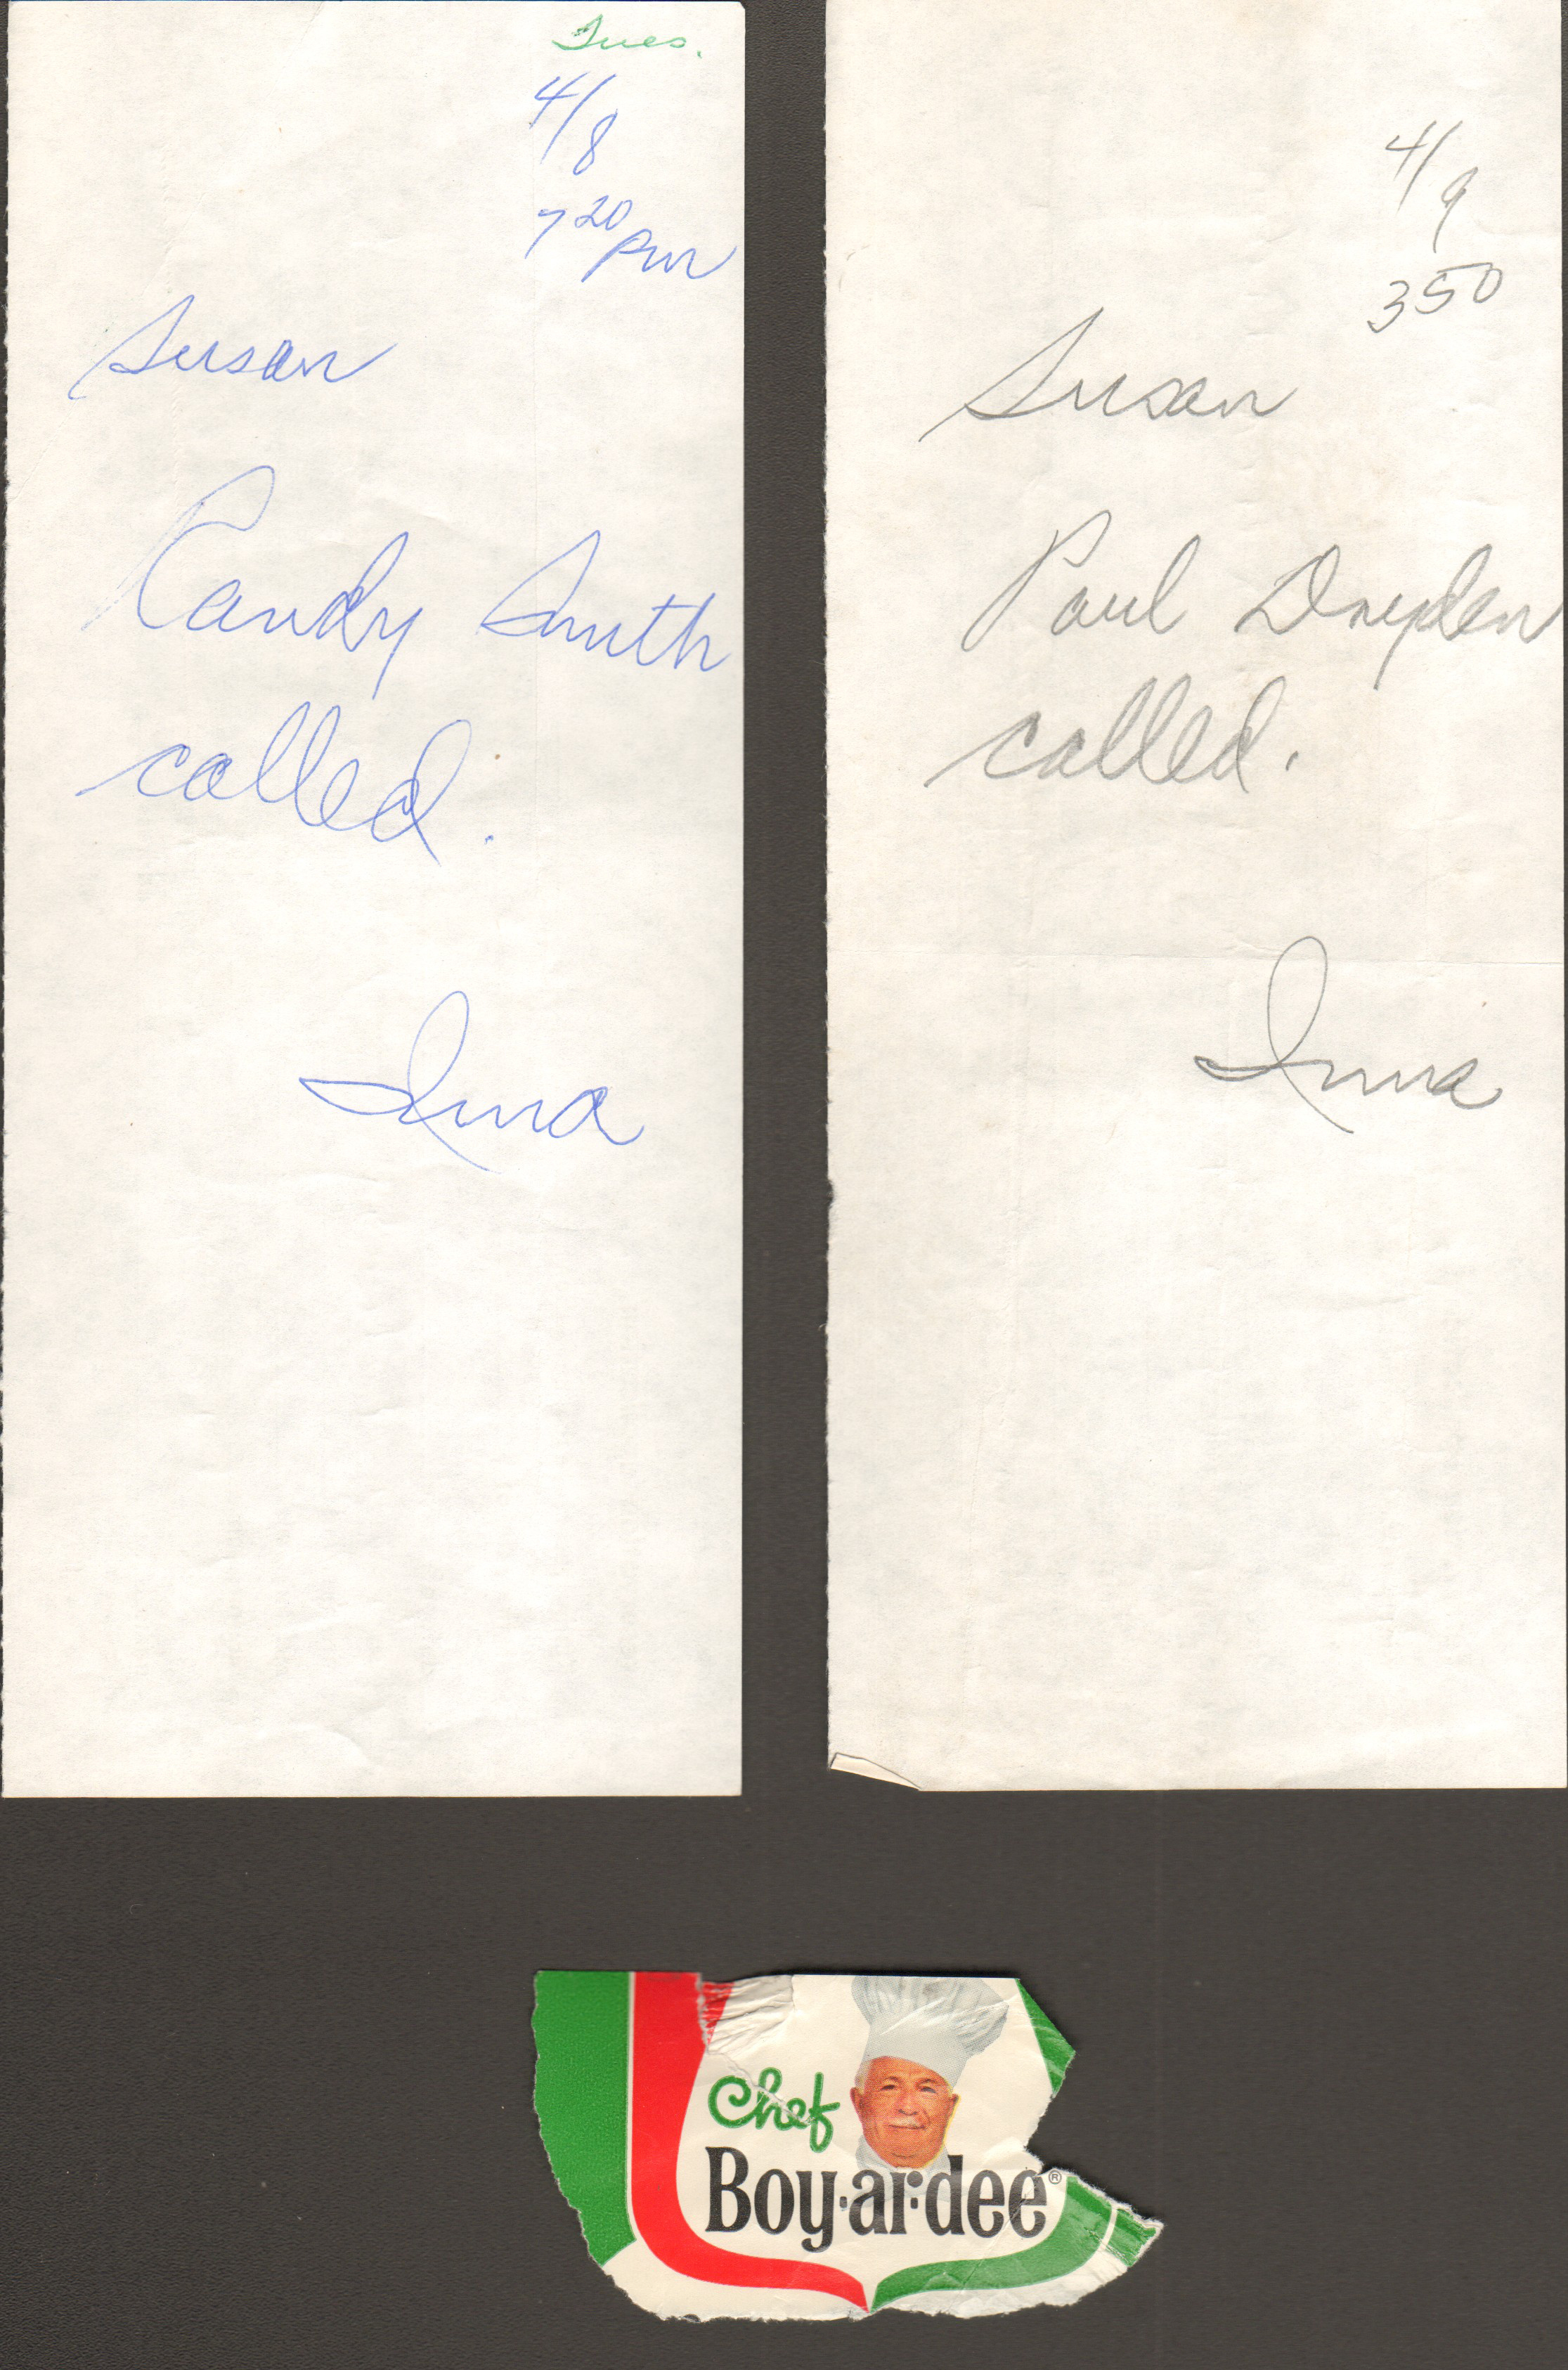 Tues.
4/8
7 20 pm
Susan
Randy Smith
called.
Inna
4/9
3 50
Susan
Paul Dryden
called.
Inna
Chef
Boy·ar·dee®